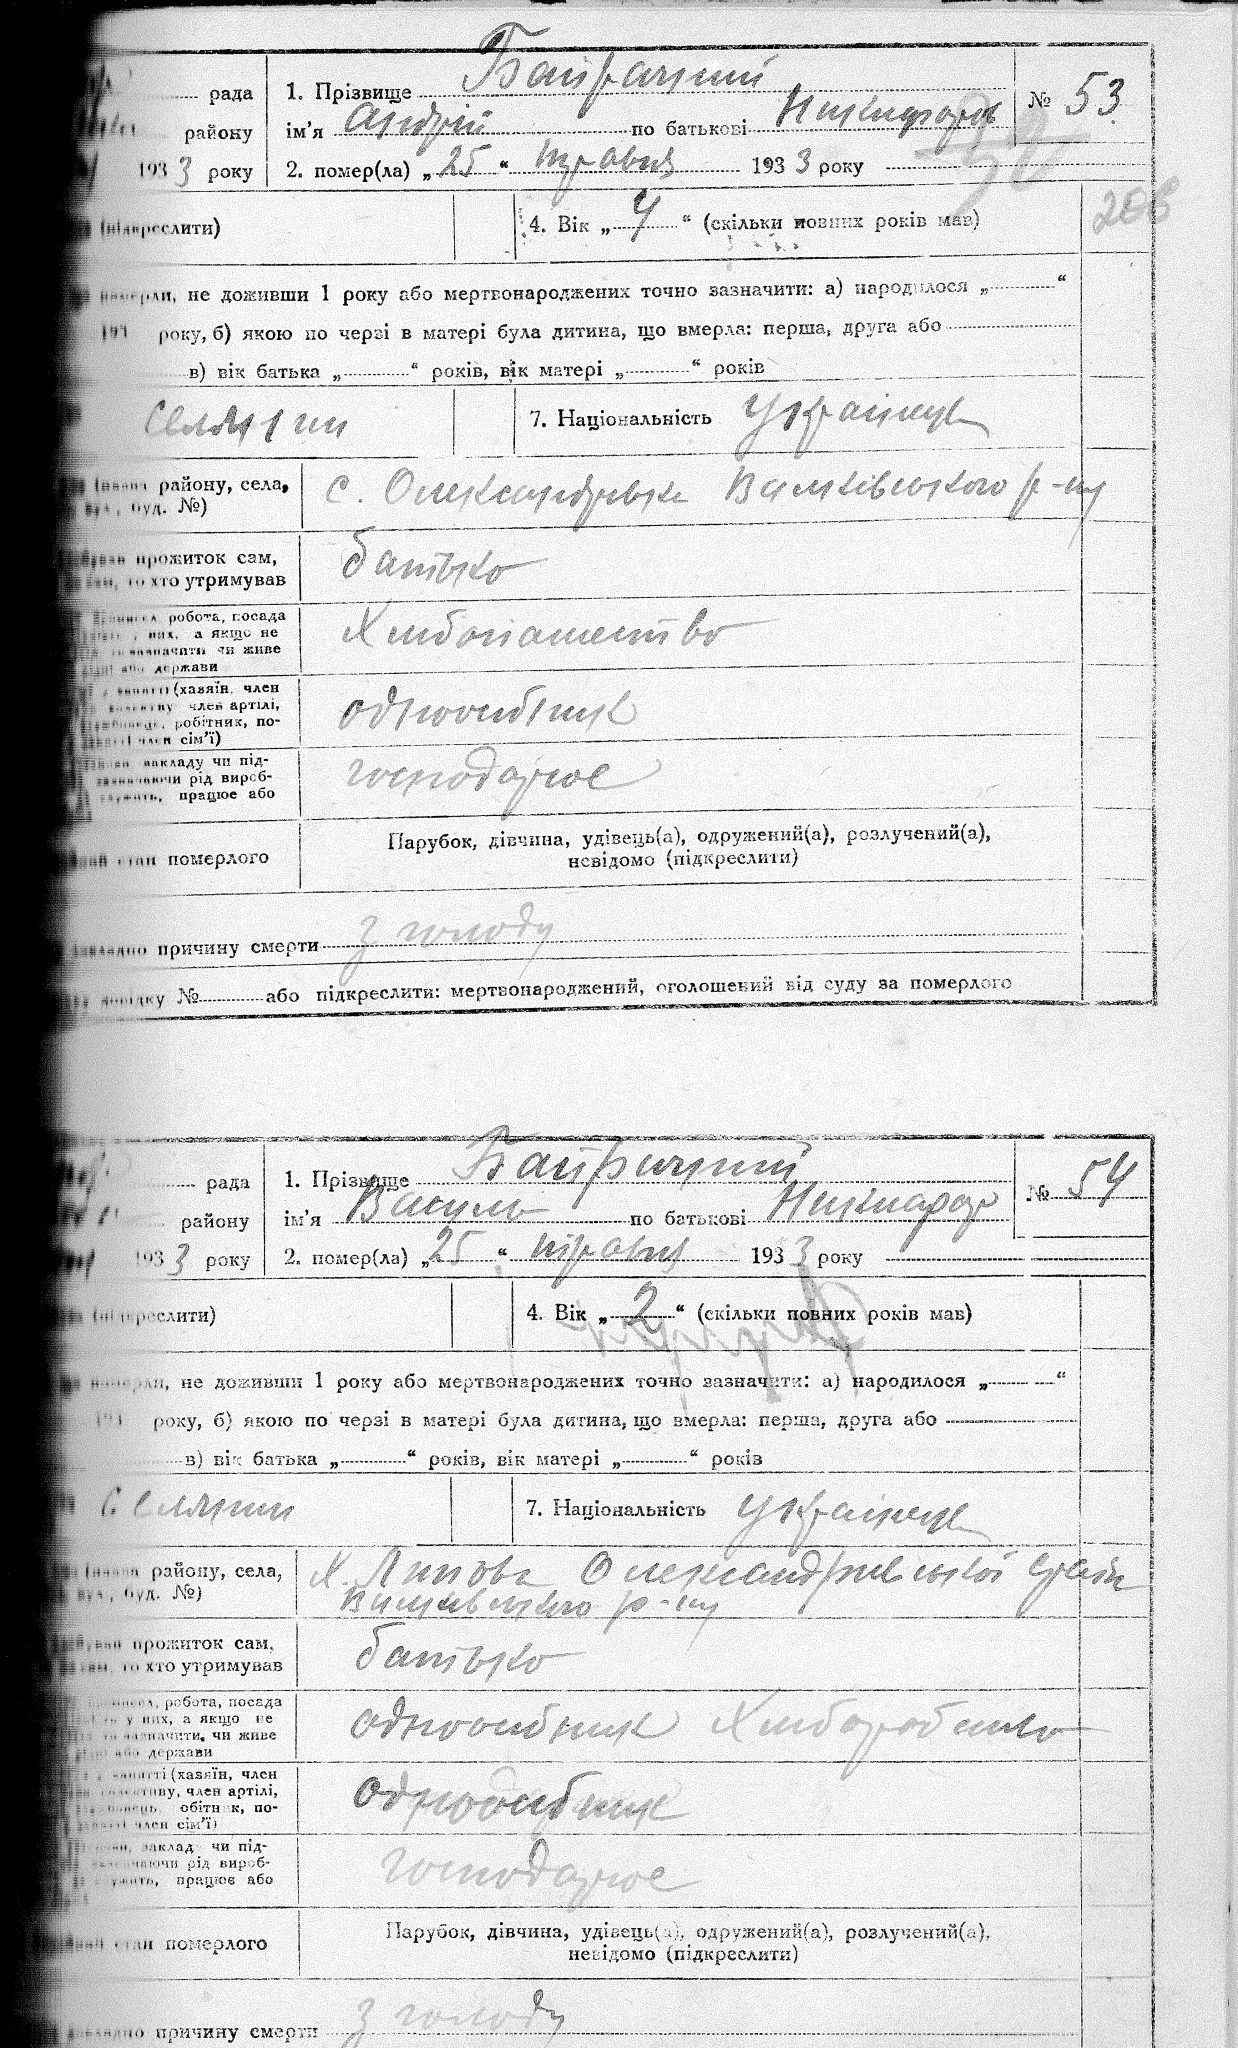 рада
1. Прізвище Байрачний
№ 53
району
ім'я Андрій по батькові Никифоров
1933 року
2. помер(ла) „25“ травня 1933 року
206
(підкреслити)
4. Вік „4“ (скільки повних років мав)
померли, не доживши 1 року або мертвонароджених точно зазначити: а) народилося „ “
193 року, б) якою по черзі в матері була дитина, що вмерла: перша, друга або
в) вік батька „ “ років, вік матері „ “ років
Селянин
7. Національність Українець
(назва району, села,
вул., буд. №)
с. Олександрівка Валківського р-ну
прожиток сам,
то хто утримував
батько
робота, посада
них, а якщо не
зазначити чи живе
або держави
Хлібопашество
занятті (хазяїн, член
член артілі,
робітник, по-
член сім'ї)
одноосібник
закладу чи під-
рід вироб-
працює або
господарює
стан померлого
Парубок, дівчина, удівець(а), одружений(а), розлучений(а),
невідомо (підкреслити)
докладно причину смерти з голоду
довідку № або підкреслити: мертвонароджений, оголошений від суду за померлого
рада
1. Прізвище Байрачний
№ 54
району
ім'я Василь по батькові Никифор
1933 року
2. помер(ла) „25“ травня 1933 року
(підкреслити)
4. Вік „2“ (скільки повних років мав)
померли, не доживши 1 року або мертвонароджених точно зазначити: а) народилося „ “
193 року, б) якою по черзі в матері була дитина, що вмерла: перша, друга або
в) вік батька „ “ років, вік матері „ “ років
Селянин
7. Національність Українець
(назва району, села,
вул., буд. №)
х. Олександрівської сради
Валківського р-ну
прожиток сам,
то хто утримував
батько
робота, посада
у них, а якщо не
зазначити, чи живе
або держави
одноосібник
занятті (хазяїн, член
колективу, член артілі,
по-
член сім'ї)
одноосібник
заклад чи під-
рід вироб-
працює або
господарює
стан померлого
Парубок, дівчина, удівець(а), одружений(а), розлучений(а),
невідомо (підкреслити)
докладно причину смерти з голоду